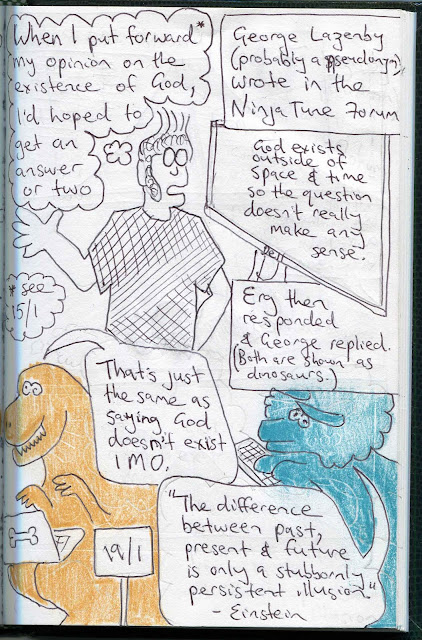 When I put forward*
my opinion on the
existence of God,
I'd hoped to
get an
answer
or two
* see
15/1
George Lazenby
(probably a pseudonym)
wrote in the
Ninja Tune Forum
God exists
outside of
space & time
so the question
doesn't really
make any
sense.
Erg then
responded
& George replied.
(Both are shown as
dinosaurs.)
That's just
the same as
saying God
doesn't exist
IMO.
19/1
"The difference
between past,
present & future
is only a stubbornly
persistent illusion."
- Einstein